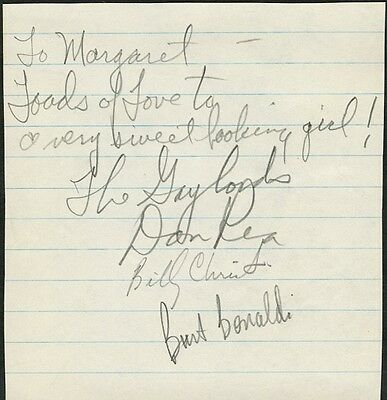 To Margaret —
Loads of Love to
a very sweet looking girl!
The Gaylords
Don Rea
Billy Christ.
Burt Bonaldi